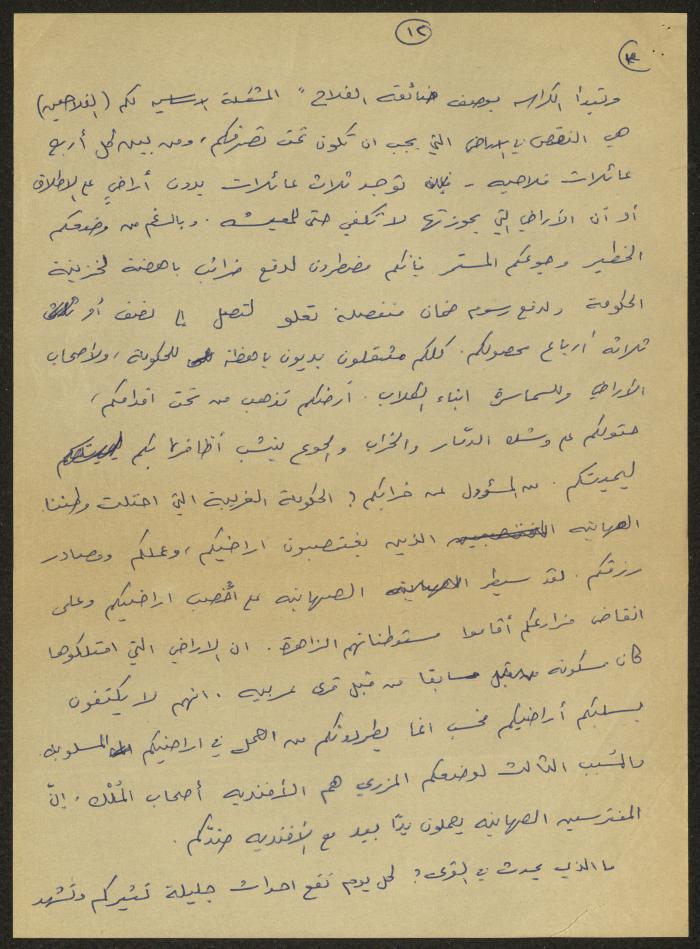 ١٢
٣
وتبدأ الكراسه بوصف ضائقة الفلاح " المشكلة الاساسيه لكم (الفلاحين)
هي النقص في الاراضي التي يجب ان تكون تحت تصرفكم، ومن بين كل أربع
عائلات فلاحيه - توجد ثلاث عائلات بدون أراضي على الاطلاق
أو أن الأراضي التي بحوزتها لا تكفي حتى للمعيشه. وبالرغم من وضعكم
الخطير وجوعكم المستمر فإنكم مضطرون لدفع ضرائب باهضة لخزينة
الحكومة ولدفع رسوم ضمان منفصلة تعلو لتصل إلى نصف أو
ثلاثة أرباع محصولكم. كلكم مثقلون بديون باهظة للحكومة، ولأصحاب
الأراضي وللسماسرة ابناء الكلاب. أرضكم تذهب من تحت اقدامكم،
حقولكم على وشك الدمار والخراب والجوع ينشب أظافره بكم
ليميتكم. من المسؤول عن خرابكم؟ الحكومة الغريبة التي احتلت وطننا
الصهاينه الذين يغتصبون اراضيكم، وعملكم ومصادر
رزقكم. لقد سيطر الصهاينه على أخصب اراضيكم وعلى
انقاض مزارعكم أقاموا مستوطناتهم الزاهرة. ان الاراضي التي امتلكوها
كان مسكونه سابقا من قبل قرى عربيه. انهم لا يكتفون
بسلبكم أراضيكم فحسب انما يطردونكم من العمل في اراضيكم المسلوبه
والسبب الثالث لوضعكم المزري هم الأفنديه أصحاب المُلك، إنّ
المفترسين الصهاينه يعملون يدًا بيد مع الأفنديه ضدّكم.
ما الذي يحدث في القرى؟ كل يوم تقع احداث جليلة تثيركم وتشهد